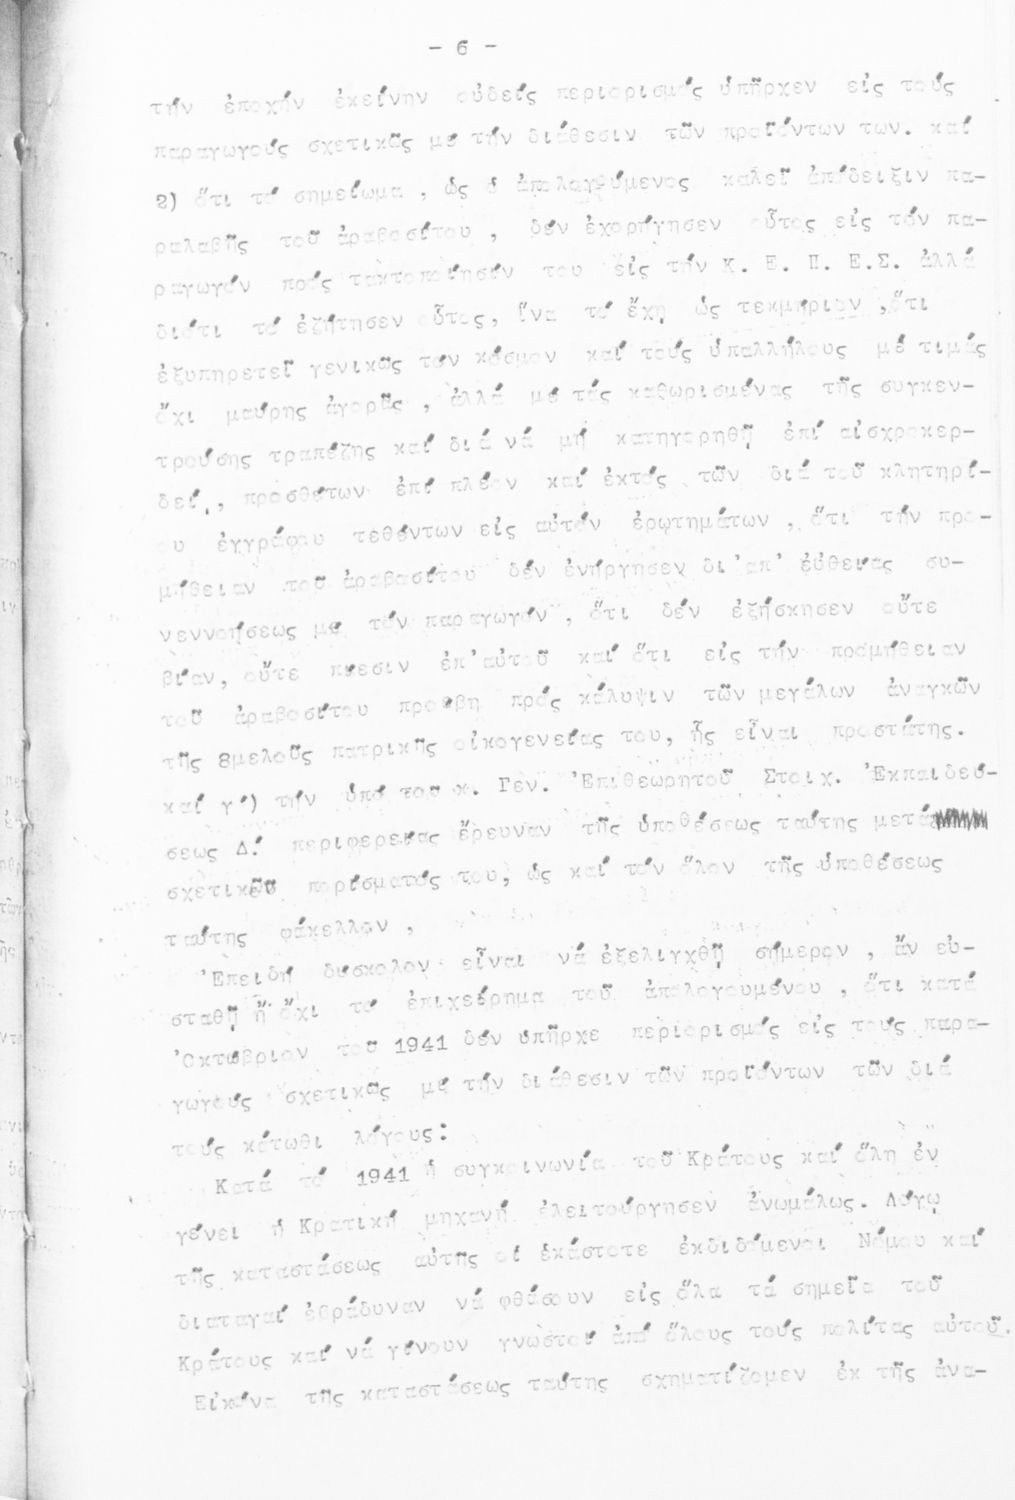 - 6 -
τήν ἐποχήν ἐκείνην οὐδείς περιορισμός ὑπῆρχεν εἰς τούς
παραγωγούς σχετικῶς μέ τήν διάθεσιν τῶν προϊόντων των. καί
2) ὅτι τό σημείωμα , ὡς ὁ ἀπολογούμενος καλεῖ ἀπόδειξιν πα-
ραλαβῆς τοῦ ἀραβοσίτου , δέν ἐχορήγησεν οὗτος εἰς τόν πα-
ραγωγόν πρός τακτοποίησίν του εἰς τήν Κ. Ε. Π. Ε.Σ. ἀλλά
διότι τό ἐζήτησεν οὗτος, ἵνα τό ἔχῃ ὡς τεκμήριον ,ὅτι
ἐξυπηρετεῖ γενικῶς τόν κόσμον καί τούς ὑπαλλήλους μέ τιμάς
ὄχι μαύρης ἀγορᾶς , ἀλλά μέ τάς καθωρισμένας τῆς συγκεν-
τρούσης τραπέζης καί διά νά μή κατηγορηθῇ ἐπί αἰσχροκερ-
δεί , προσθέτων ἐπί πλέον καί ἐκτός τῶν διά τοῦ κλητηρί-
ου ἐγγράφου τεθέντων εἰς αὐτόν ἐρωτημάτων , ὅτι τήν προ-
μήθειαν τοῦ ἀραβοσίτου δέν ἐνήργησεν δι'ἀπ' εὐθείας συ-
νεννοήσεως μέ τόν παραγωγόν , ὅτι δέν ἐξήσκησεν οὔτε
βίαν, οὔτε πίεσιν ἐπ'αὐτοῦ καί ὅτι εἰς τήν προμήθειαν
τοῦ ἀραβοσίτου προέβη πρός κάλυψιν τῶν μεγάλων ἀναγκῶν
τῆς 8μελοῦς πατρικῆς οἰκογενείας του, ἧς εἶναι προστάτης.
καί γ') τήν ὑπό τοῦ κ. Γεν. Ἐπιθεωρητοῦ Στοιχ. Ἐκπαιδεύ-
σεως Δ! περιφερείας ἔρευναν τῆς ὑποθέσεως ταύτης μετά
σχετικοῦ πορίσματός του, ὡς καί τόν ὅλον τῆς ὑποθέσεως
ταύτης φάκελλον ,
Ἐπειδή δύσκολον εἶναι νά ἐξελιγχθῇ σήμερον , ἄν εὐ-
σταθῇ ἤ ὄχι τό ἐπιχείρημα τοῦ ἀπολογουμένου , ὅτι κατά
Ὀκτώβριον τοῦ 1941 δέν ὑπῆρχε περιορισμός εἰς τούς παρα-
γωγούς σχετικῶς μέ τήν διάθεσιν τῶν προϊόντων τῶν διά
τούς κάτωθι λόγους:
Κατά τό 1941 ἡ συγκοινωνία τοῦ Κράτους καί ὅλη ἐν
γένει ἡ Κρατική μηχανή ἐλειτούργησεν ἀνωμάλως. Λόγῳ
τῆς καταστάσεως αὐτῆς οἱ ἑκάστοτε ἐκδιδόμενοι Νόμου καί
διαταγαί ἐβράδυναν νά φθάσουν εἰς ὅλα τά σημεῖα τοῦ
Κράτους καί νά γίνουν γνωστοί ἀπό ὅλους τούς πολίτας αὐτοῦ.
Εἰκόνα τῆς καταστάσεως ταύτης σχηματίζομεν ἐκ τῆς ἀνα-